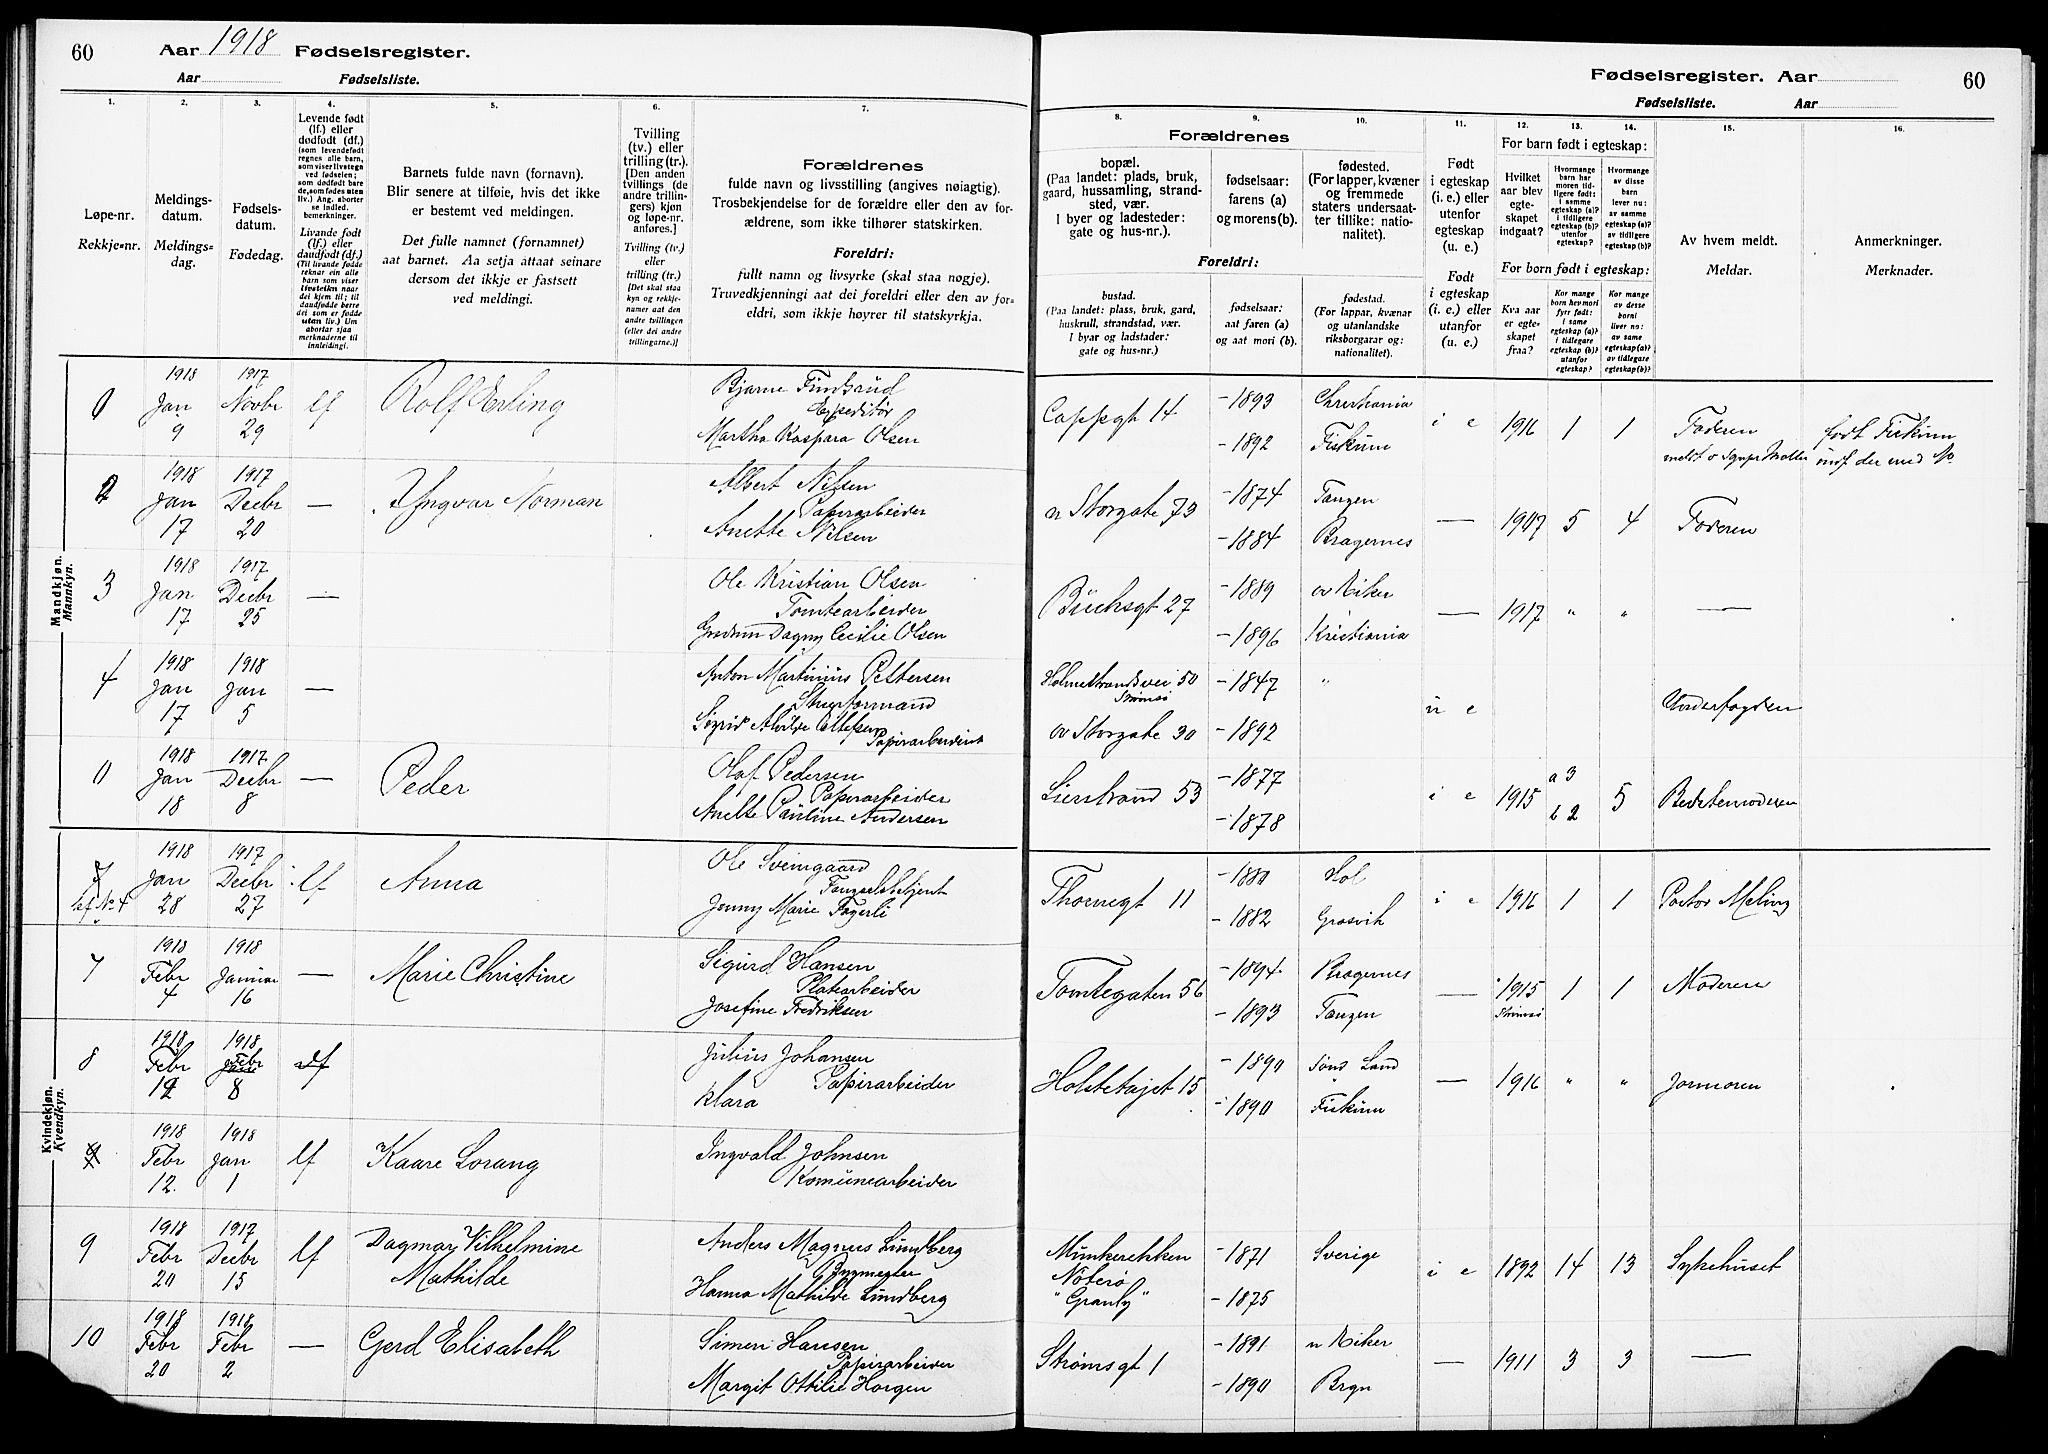 60 Aar 1918 Fødselsregister.
Aar Fødselsliste.
Fødselsregister. Aar 60
Fødselsliste. Aar
1. 2. 3. 4. 5. 6. 7. 8. 9. 10. 11. 12. 13. 14. 15. 16.
Løpe-nr.
Rekkje-nr.
Meldings-
datum.
Meldings-
dag.
Fødsels-
datum.
Fødedag.
Levende født
(lf.) eller
dødfødt (df.)
(som levendefødt
regnes alle barn,
som viser livstegn
ved fødselen;
som dødfødt bare
de, som fødes uten
liv.) Ang. aborter
se indled.
bemerkninger.
Livande født
(lf.) eller
daudfødt (df.)
(Til livande fødde
reknar ein alle
barn som viser
livsteikn naar
dei kjem til; til
daudfødde berre
dei som er fødde
utan liv.) Um
abortar sjaa
merknaderne til
innleidingi.
Barnets fulde navn (fornavn).
Blir senere at tilføie, hvis det ikke
er bestemt ved meldingen.
Det fulle namnet (fornamnet)
aat barnet. Aa setja attaat seinare
dersom det ikkje er fastsett
ved meldingi.
Tvilling
(tv.) eller
trilling (tr.).
[Den anden
tvillings (de
andre trillin-
gers) kjøn
og løpe-nr.
anføres.]
Tvilling (tv.)
eller
trilling (tr.)
[Det skal staa
kyn og rekkje-
numer aat den
andre tvillingen
(eller dei andre
trillingarne.)]
Forældrenes
fulde navn og livsstilling (angives nøiagtig).
Trosbekjendelse for de forældre eller den av for-
ældrene, som ikke tilhører statskirken.
Foreldri:
fullt namn og livsyrke (skal staa nøgje).
Truvedkjenningi aat dei foreldri eller den av for-
eldri, som ikkje høyrer til statskyrkja.
Forældrenes
bopæl.
(Paa landet: plads, bruk,
gaard, hussamling, strand-
sted, vær.
I byer og ladesteder:
gate og hus-nr.).
fødselsaar:
farens (a)
og morens (b).
fødested.
(For lapper, kvæner
og fremmede
staters undersaat-
ter tillike: natio-
nalitet).
Foreldri:
bustad.
(Paa landet: plass, bruk, gard,
huskrull, strandstad, vær.
I byar og ladstader:
gate og hus-nr.)
fødselsaar:
aat faren (a)
og aat mori (b).
fødestad.
(For lappar, kvænar
og utanlandske
riksborgarar og:
nationalitet).
Født
i egteskap
(i. e.) eller
utenfor
egteskap
(u. e.)
Født
i egteskap
(i. e.) eller
utanfor
egteskap
(u. e.)
For barn født i egteskap:
Hvilket
aar blev
egte-
skapet
indgaat?
Hvormange
barn har
moren tid-
ligere født:
i samme
egteskap (a)?
i tidligere
egteskap (b)?
utenfor
egteskap?
Hvormange
av disse
barn
lever nu:
av samme
egteskap (a)?
av tidligere
egteskap (b)?
For born født i egteskap:
Kva aar
er egte-
skapet
fraa?
Kor mange
born hev mori
fyrr født:
i same
egteskap (a)?
i tidlegare
egteskap (b)?
utanfor
egteskap?
Kor mange
av desse
borni
liver no:
av same
egteskap (a)?
av tidlegare
egteskap (b)?
Av hvem meldt.
Meldar.
Anmerkninger.
Merknader.
Mandkjøn.
Mannkyn.
1918 1917 Bjarne Findsrud
1 Jan Novbr lf Rolf Erling Expeditør Cappsgt 14 -1893 Christiania i e 1916 1 1 Faderen født Fiskum
9 29 Martha Kaspara Olsen -1892 Fiskum
1918 1917 Albert Nilsen
2 Jan Decbr — Yngvar Norman Papirarbeider n Storgate 73 -1874 Tangen — 1907 5 4 Faderen
17 20 Anette Nilsen -1884 Bragernes
1918 1917 Ole Kristian Olsen
3 Jan Decbr — Tomtearbeider Buchsgt 27 -1889 øv Eiker — 1917 " " —
17 25 Gudrun Dagny Cecilie Olsen -1896 Kristiania
1918 1918 Anton Martinius Pettersen Holmestrandsvei 50 -1847 "
4 Jan Jan — Strømsø u e
17 5 Sigrid Alvilde Ellefsen Papirarbeiderske øv Storgate 30 -1892
1918 1917 Olaf Pedersen
11 Jan Decbr — Peder Papirarbeider Lierstrand 53 -1877 i e 1915 a 3 b 2 5 Bedstemoderen
18 8 Anette Pauline Andersen -1878
Kvindekjøn.
Kvendkyn.
1918 1917 Ole Sveingaard
7 Jan Decbr lf Anna Fængselsbetjent Thornegt 11 -1880 Hol i e 1916 1 1 Pastor Meling
28 27 Jenny Marie Fagerli -1882 Grosvik
1918 1918 Sigurd Hansen
7 Febr Januar — Marie Christine Platearbeider Tomtegaten 56 -1894 Bragernes — 1915 1 1 Moderen
4 16 Josefine Fredriksen -1893 Tangen Strømsø
1918 1918 Julius Johansen
8 Febr Febr df Papirarbeider -1890 Søns Land — 1916 " " Jormoren
12 8 Klara -1890 Fiskum
1918 1918 Ingvald Johnsen
9 Febr Jan lf Kaare Lorang Komunearbeider
12. 1
1918 1917 Dagmar Vilhelmine Anders Magnus Lundberg Munkerekken -1871 Sverige
9 Febr Decbr lf Mathilde Nøterø i e 1892 14 13 Sykehuset
20 15 Hanna Mathilde Lundberg "Granly" -1875
1918 1918 Simen Hansen
10 Febr Febr — Gerd Elisabeth Papirarbeider Strømsgt 1 -1891 n Eiker — 1911 3 3 —
20 2 Margit Ottilie Horgen -1890 Brgn